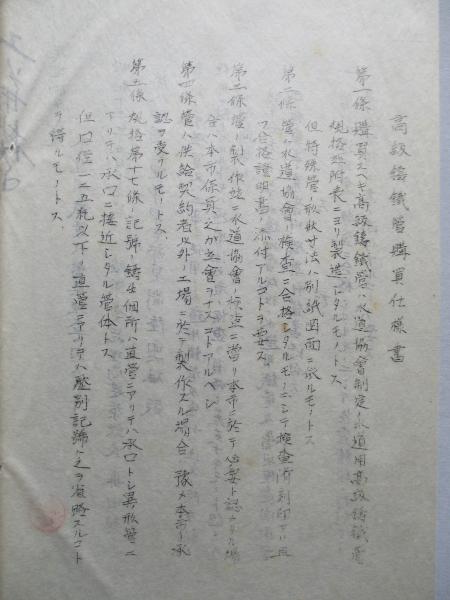 高級鋳鉄管購買仕様書
第一條 購買スベキ高級鋳鉄管ハ水道協會制定ノ水道用高級鋳鉄管
規格並附表ニヨリ製造シタルモノトス
但特殊管ノ形状寸法ハ別紙図面ニ依ルモノトス
第二條 管ハ水道協會ノ検査ニ合格シタルモノニシテ検査済刻印アリ且
ツ合格證明書ノ添付アルコトヲ要ス
第三條 管ノ製作並ニ水道協會ノ検査ニ當リ本市ニ於テ必要ト認メタル場
合ハ本市係員之ガ立會ヲナスコトアルベシ
第四條 管ハ供給契約者以外ノ工場ニ於テ製作スル場合ハ豫メ本市ノ承
認ヲ受クルモノトス
第五條 規格第十七條ノ記號ノ鋳出個所ハ直管ニアリテハ承口トシ異形管ニ
アリテハ承口ニ接近シタル管体トス
但口径一二五粍以下ノ直管ニアリテハ壓別記號ハ之ヲ省略スルコト
ヲ得ルモノトス